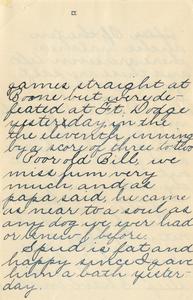 games straight at
Boone but were de-
feated at Ft. Dodge
yesterday in the
the eleventh inning
by a score of three to two
Poor old Bill, we
miss him very
much and, as
papa said, he came
as near to a soul as
any dog we ever had
or knew before.
Spud is fat and
happy since I gave
him a bath yester-
day.